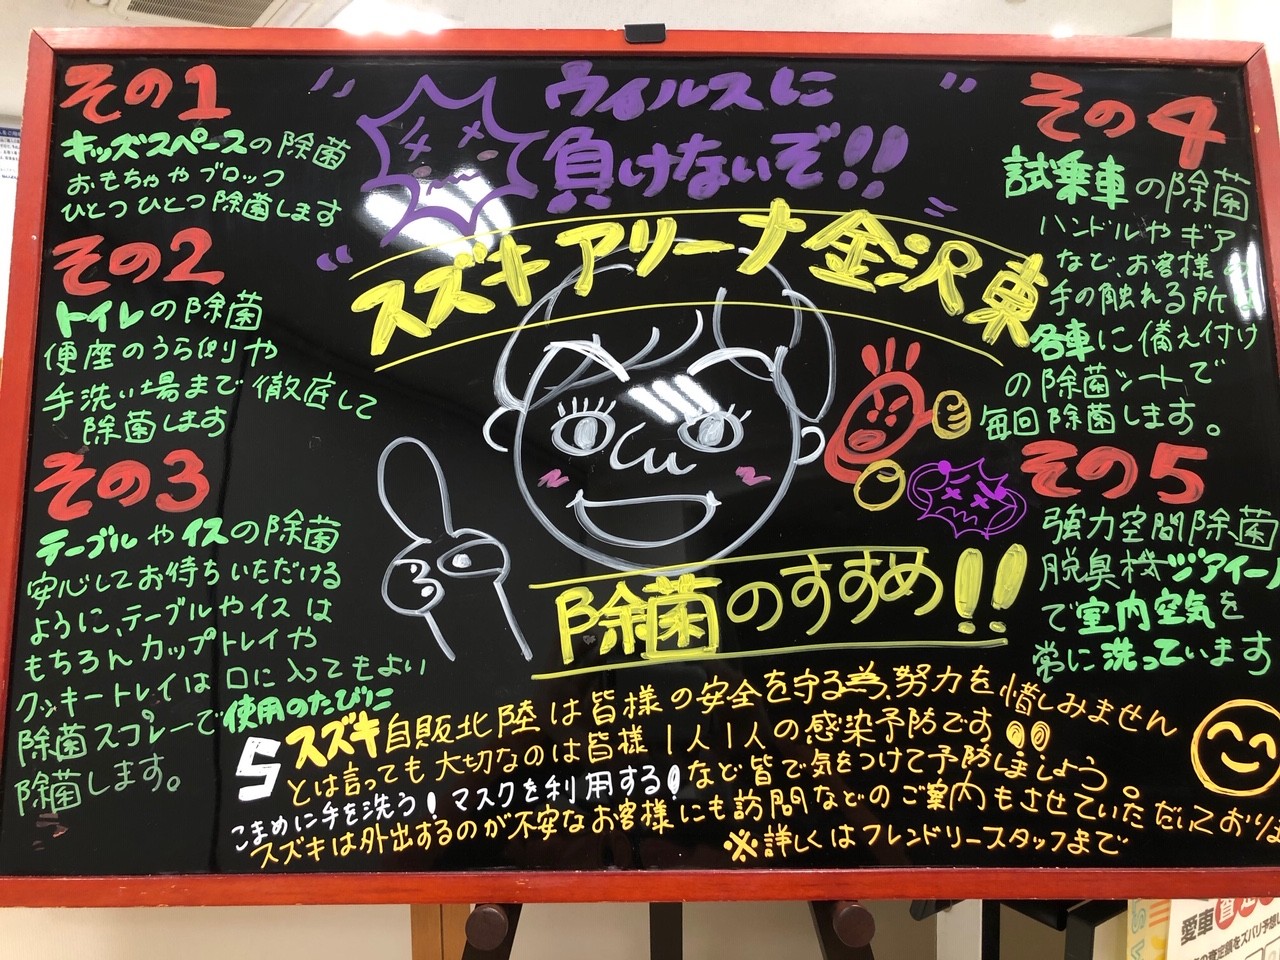 ウイルスに
負けないぞ!!
スズキアリーナ金沢東
除菌のすすめ!!
その1
キッズスペースの除菌
おもちゃやブロック
ひとつひとつ除菌します
その2
トイレの除菌
便座のうら側りや
手洗い場まで徹底して
除菌します
その3
テーブルやイスの除菌
安心してお待ちいただける
ように、テーブルやイスは
もちろんカップトレイや
クッキートレイは口に入ってもよい
除菌スプレーで使用のたびに
除菌します。
その4
試乗車の除菌
ハンドルやギア
など、お客様の
手の触れる所は
各車に備え付け
の除菌シートで
毎回除菌します。
その5
強力空間除菌
脱臭機ジアイーノ
で室内空気を
常に洗っています
スズキ自販北陸は皆様の安全を守る為、努力を惜しみません
とは言っても大切なのは皆様1人1人の感染予防です!!
こまめに手を洗う!マスクを利用する!など皆で気をつけて予防しましょう。
スズキは外出するのが不安なお客様にも訪問などのご案内もさせていただいておりま
※詳しくはフレンドリースタッフまで
愛車